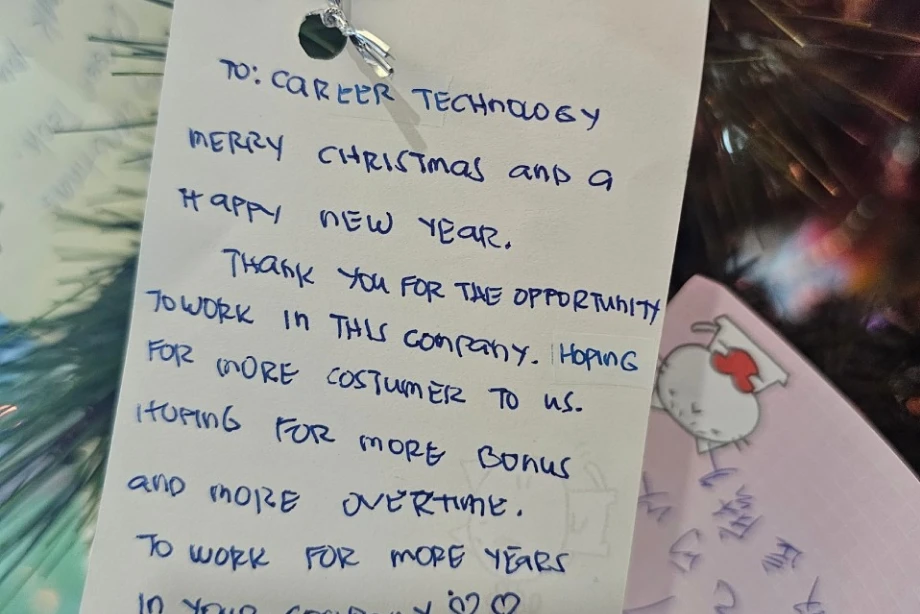 TO: CAREER TECHNOLOGY
MERRY CHRISTMAS AND A
HAPPY NEW YEAR.
THANK YOU FOR THE OPPORTUNITY
TO WORK IN THIS COMPANY. HOPING
FOR MORE COSTUMER TO US.
HOPING FOR MORE BONUS
AND MORE OVERTIME.
TO WORK FOR MORE YEARS
IN YOUR COMPANY ♡♡